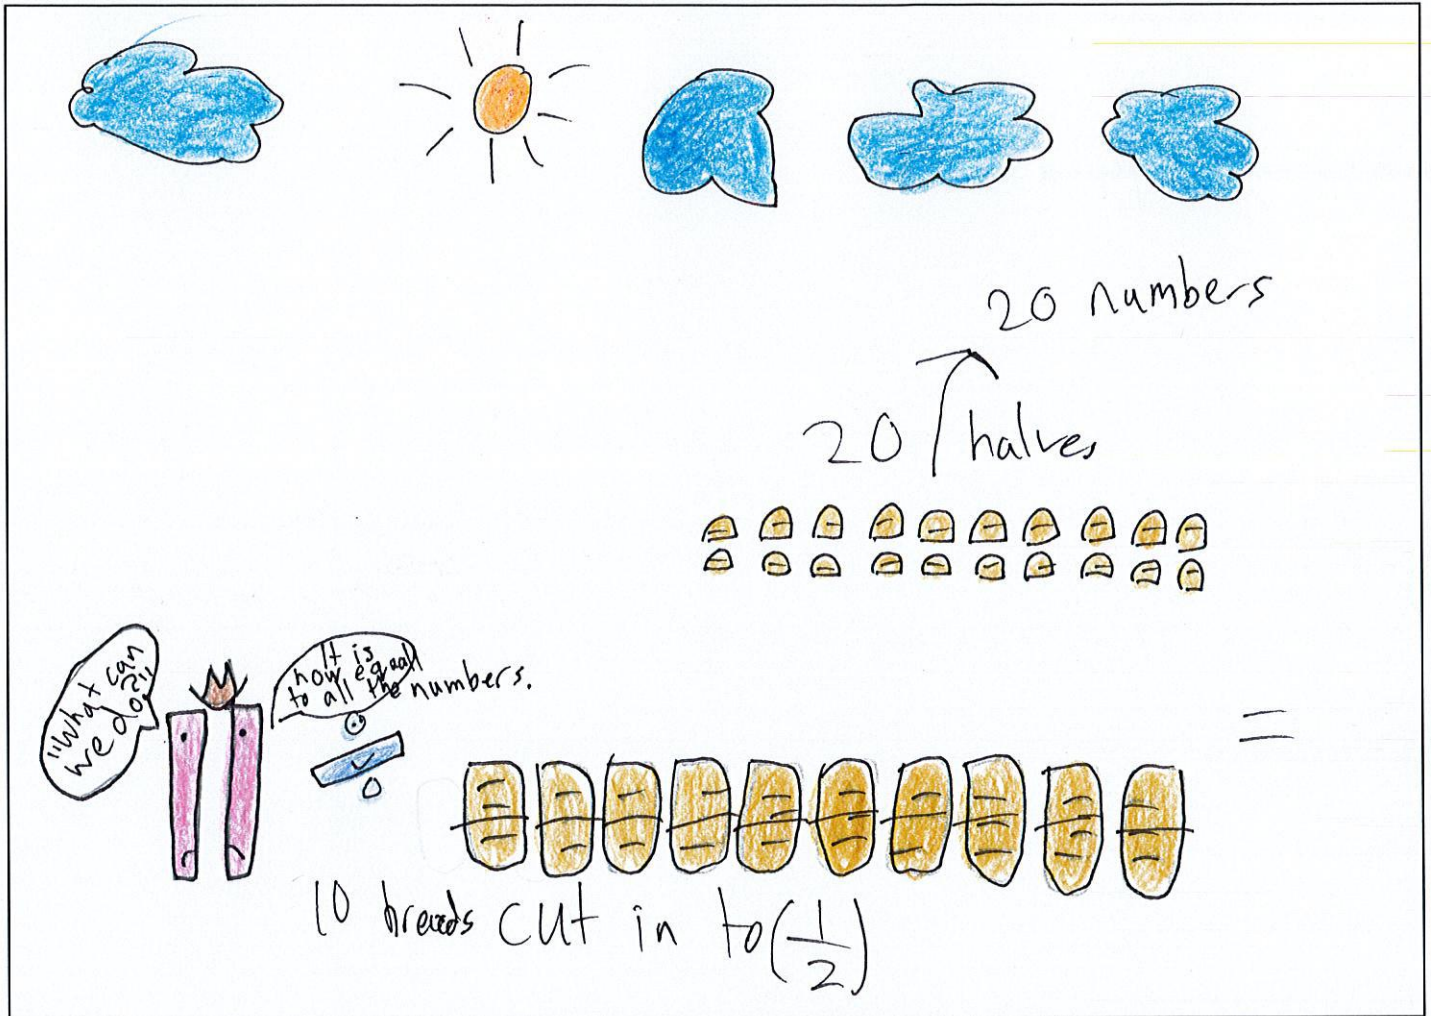 20 numbers
20 halves
"What can
we do?"
It is
now equall
to all the numbers.
=
10 breads cut in to (1/2)